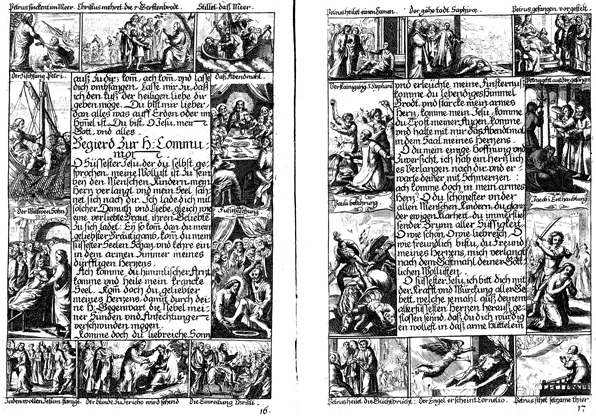 Petrus sincket im Meer.
Christus mehret die 5 Gerstenbrodt.
Stillet daß Meer.
Der Fischfang Petri.
Das Abendmahl.
auß zu dir: kom, ach kom, und lasse
dich umbfangen. Lasse mir zu, daß
ich den kuß der heiligen liebe dir
geben möge. Du bist mir lieber
dan alles was auff Erden oder im
Himel ist. Du bist, O Jesu, mein
Gott, und alles.
Begierd zur H: Commu-
nion
O Süssester Jesu, der du selbst ge-
sprochen, meine Wollust ist zu sein
bey den Menschen Kindern, mein
Herz verlangt und mein Seel säh-
net sich nach dir. Ich lade dich mit
solcher Demuth und Liebe, gleich wie
eine verliebte Braut ihren Beliebte
zu sich ladet: Ey so kom dan du mein
geliebster Bräutigamb, kom du mein
süssester Seelen Schatz, und kehre ein
in dem armen Zimmer meines
dürfftigen Herzens.
Ach komme, du himmlischer Arzt,
komme und heile mein krancke
Seel. Kom doch du geliebter
meines Herzens, damit durch dei-
ne H: Gegenwart die Nebel mei-
ner Sünden und Anfechtungen
verschwinden mögen.
Komme doch du liebreiche Sonn
Fußwaschung
Juden wollen Jesum
Der blinde zu Jericho wird sehend
Die Einreitung Christi.
16.
Petrus heilet einen Lamen.
Der gähe todt Saphirae.
Petrus gefangen vorgestelt.
Versteinigung S. Stephani
und erleuchte meine Finsternus
komme du lebendiges Himmel
Brodt, und stärcke mein armes
Herz, komme mein Jesu, komme
du Trost meiner Augen, komme
und halte mit mir das Abendmal
in dem Saal meines Herzens.
O du meine einige Hoffnung und
Zuversicht, ich hab ein herzlich-
es Verlangen nach dir, und er-
warte deiner mit Schmerzen:
ach komme doch in mein armes
Herz.
O du schönester under
allen Menschen Kindern, du glanz
der ewigen klarheit, du immerfliessen-
der Brunn aller Süssigkeit,
O wie schön, O wie liebreich, O
wie freundlich bistu, du Freund
meines Herzens, mich verlangt
nach dem Gottmahl deiner Gött-
lichen Wollusten.
O süssester Jesu, ich bitt dich mit
der Krafft und Würckung aller Ge-
bett, welche jemahl auß deinem
allersüssesten Herzen herauß ge-
flossen seind, daß du dich würdig
en wollest, in daß arme Hüttelein
Pauli bekehrung
Jacobi Enthaubtung
Petrus heilet die
Der Engel erscheint Cornelio.
Petrus sihet seltzame thier.
17